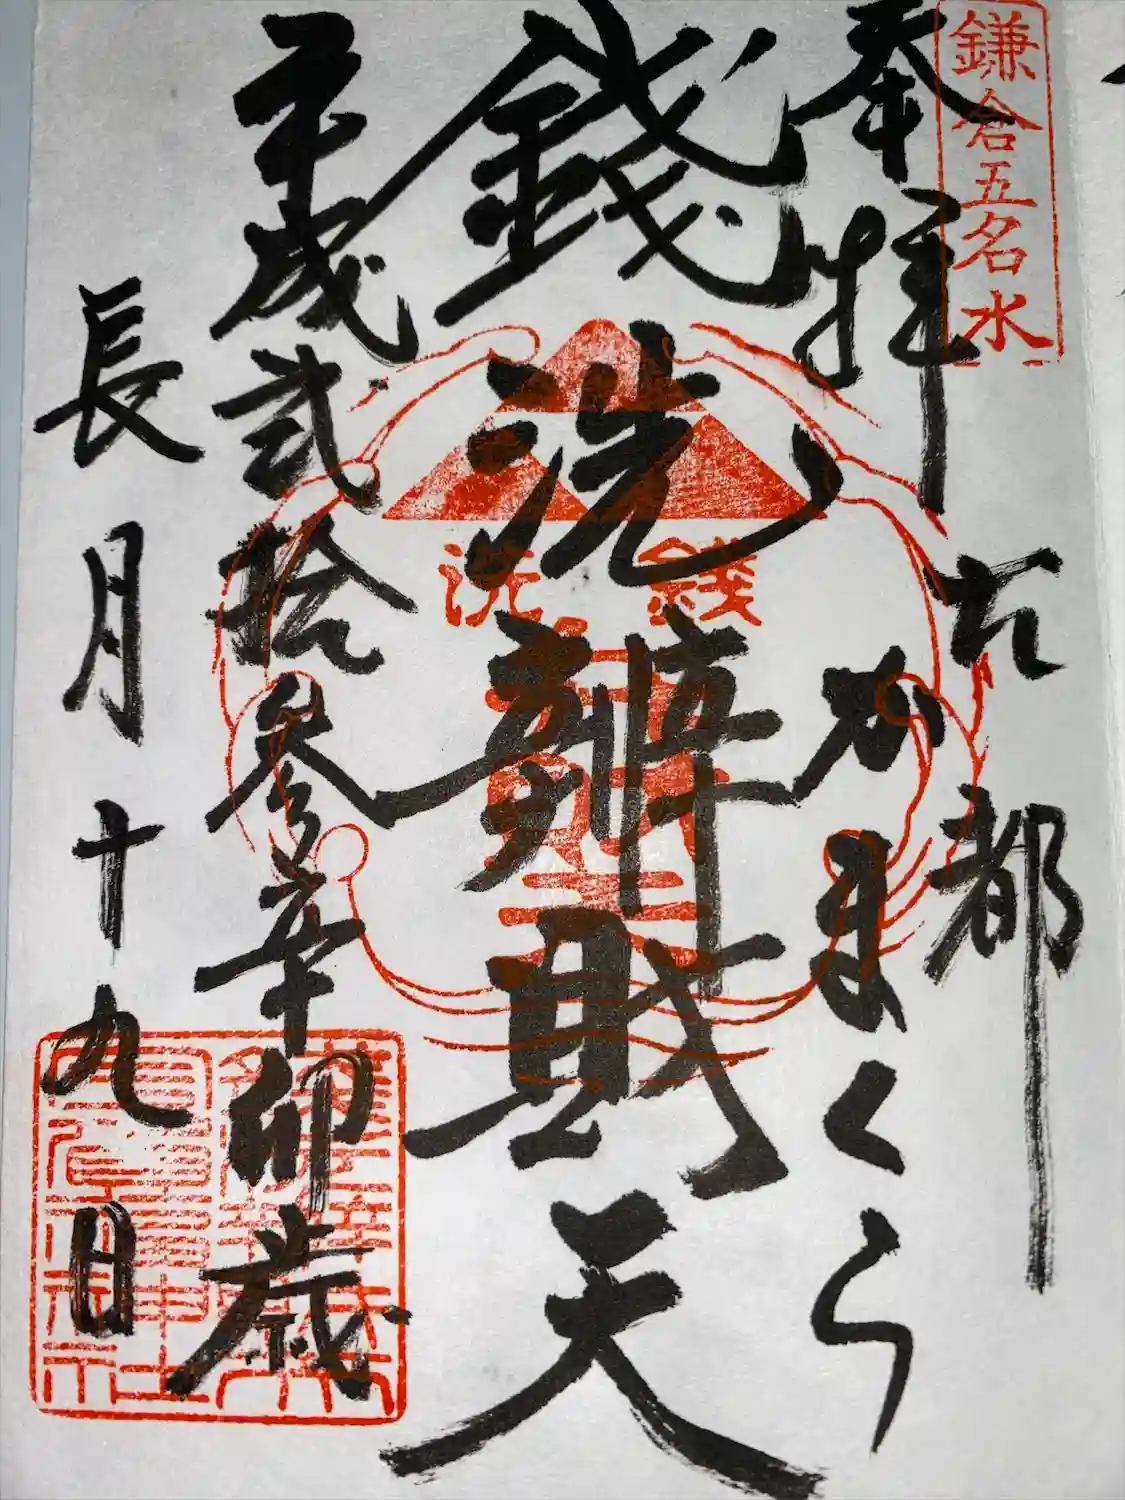 鎌倉五名水
奉拝
古都
かまくら
銭洗辨財天
銭洗
平成弐拾参辛卯歳
長月十九日